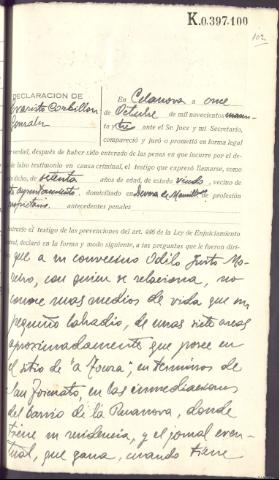 K.0.397.100
102
DECLARACION DE
Evaristo Corbillón
González
En Celanova a once
de Octubre de mil novecientos
ante el Sr. Juez y mi Secretario,
compareció y juró o prometió en forma legal
verdad, después de haber sido enterado de las penas en que incurre por el de-
de falso testimonio en causa criminal, el testigo que expresó llamarse, como
dicho, de setenta años de edad, de estado viudo, vecino de
este ayuntamiento, domiciliado en de profesión
propietario antecedentes penales
Instruído el testigo de las prevenciones del art. 446 de la Ley de Enjuiciamiento
criminal, declaró en la forma y modo siguiente, a las preguntas que le fueron dirigi-
que a su convecino Odilo Justo Mo-
reiro, con quien se relaciona, no
conoce mas medios de vida que un
pequeño labradío, de unas siete areas
aproximadamente que posee en
el sitio de "a Touza", en términos de
San Torcuato, en las inmediaciones
del barrio de la Ruanova, donde
tiene su residencia, y el jornal even-
tual, que gana, cuando tiene